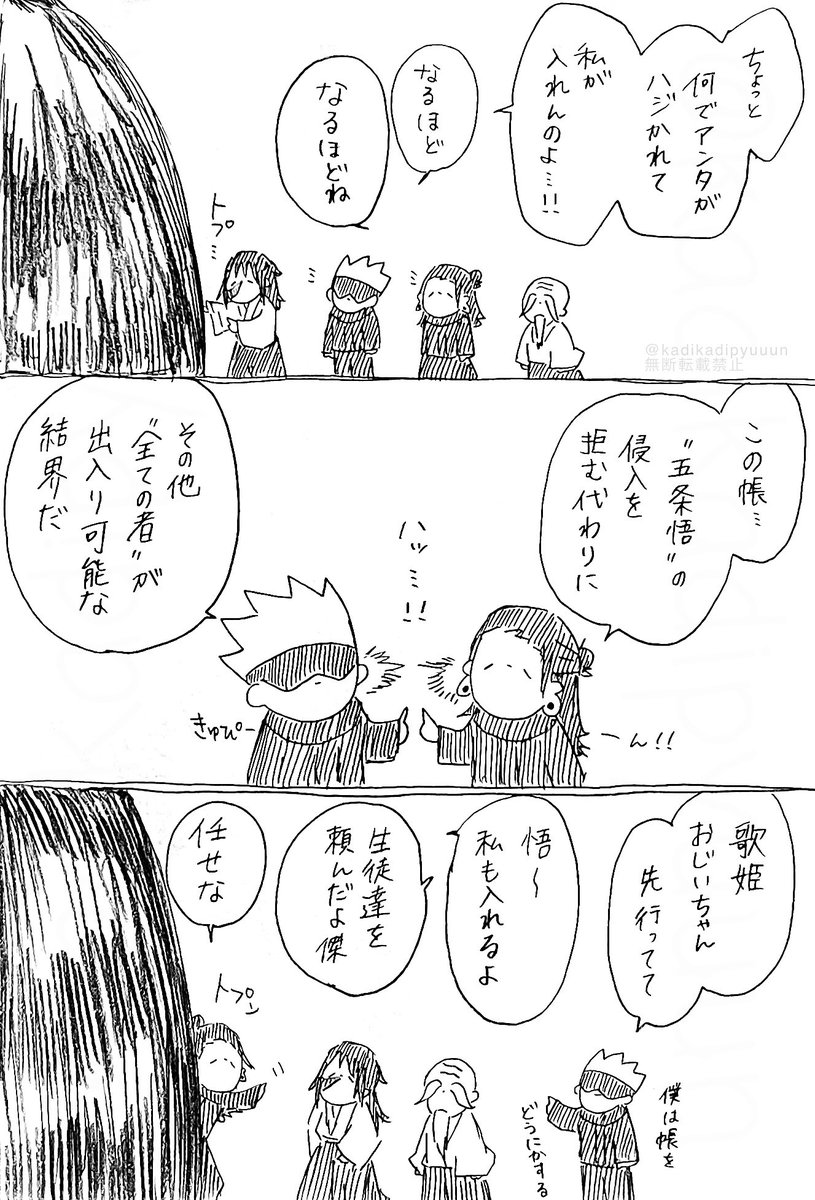 ちょっと
何でアンタが
ハジかれて
私が
入れんのよ…!!
なるほど
なるほどね
トプ…
@kadikadipyuuun
無断転載禁止
この帳…
“五条悟”の
侵入を
拒む代わりに
ハッ…!!
その他
“全ての者”が
出入り可能な
結界だ
きゅぴーーん!!
歌姫
おじいちゃん
先行ってて
悟〜
私も入れるよ
生徒達を
頼んだよ傑
任せな
トプン
僕は帳を
どうにかする